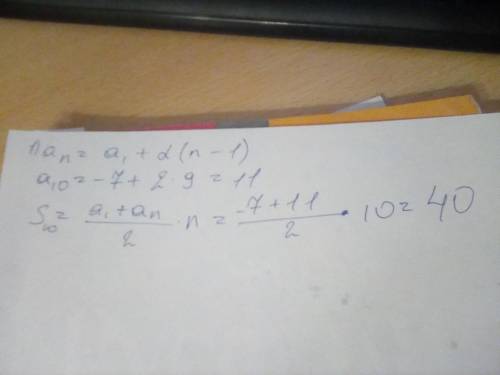 1) aₙ = a₁ + d(n-1)
a₁₀ = -7 + 2·9 = 11
S₁₀ = (a₁+aₙ)/2 · n = (-7+11)/2 · 10 = 40